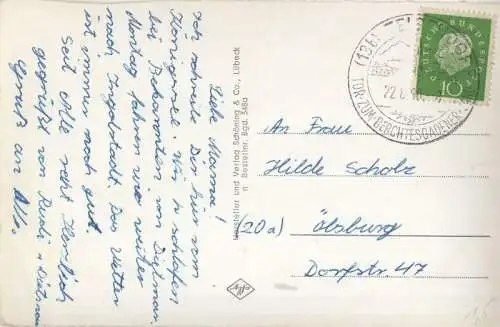 Liebe Mama!
Ich schreibe Dir hier vom
Königssee. Wir schlafen
bei Bekannten von Dietmar.
Montag fahren wir weiter
nach Ingolstadt. Das Wetter
ist immer noch gut.
Seid Alle recht Herzlich
gegrüßt von Rudi + Dietmar
Gruß an Alle.
Hersteller und Verlag Schöning & Co., Lübeck
n Bestellnr. Bgd. 348a
(13b)
22.6.
TOR ZUM BERCHTESGADENER
DEUTSCHE BUNDESPOST
10
An Frau
Hilde Scholz
(20a) Ölsburg
Dorfstr. 47